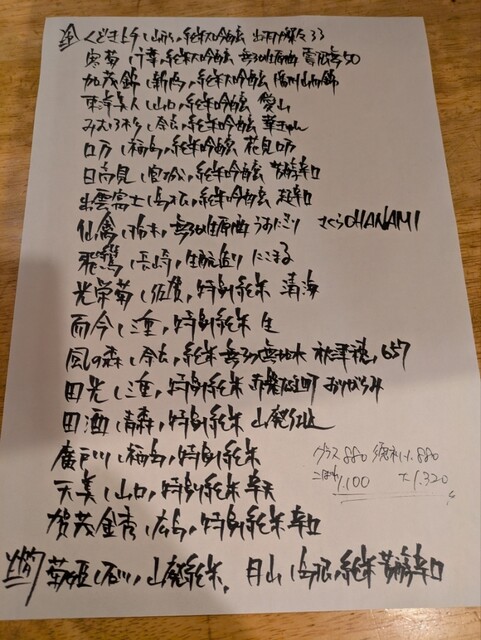 冷 くどき上手(山形)純米大吟醸 出羽燦々33
寒菊(千葉)純米大吟醸 無ろ過生原酒 雪沼雫50
加茂錦(新潟)純米大吟醸 播州山田錦
東洋美人(山口)純米吟醸 愛山
みむろ杉(奈良)純米吟醸
ロ万(福島)純米吟醸 花見ロ万
日高見(宮城)純米吟醸 芳醇辛口
出雲富士(島根)純米吟醸 超辛口
仙禽(栃木)無ろ過生原酒 うすにごり さくらOHANAMI
飛鸞(長崎)生酛造り にこまる
光栄菊(佐賀)特別純米 清海
而今(三重)特別純米 生
風の森(奈良)純米 無ろ過無加水 秋津穂 657
田光(三重)特別純米 赤磐雄町 おりがらみ
田酒(青森)特別純米 山廃仕込
廣戸川(福島)特別純米
天美(山口)特別純米 辛口
賀茂金秀(広島)特別純米 辛口
グラス 880 880
1,100 1,320
菊姫(石川)山廃純米、月山(島根)純米 芳醇辛口